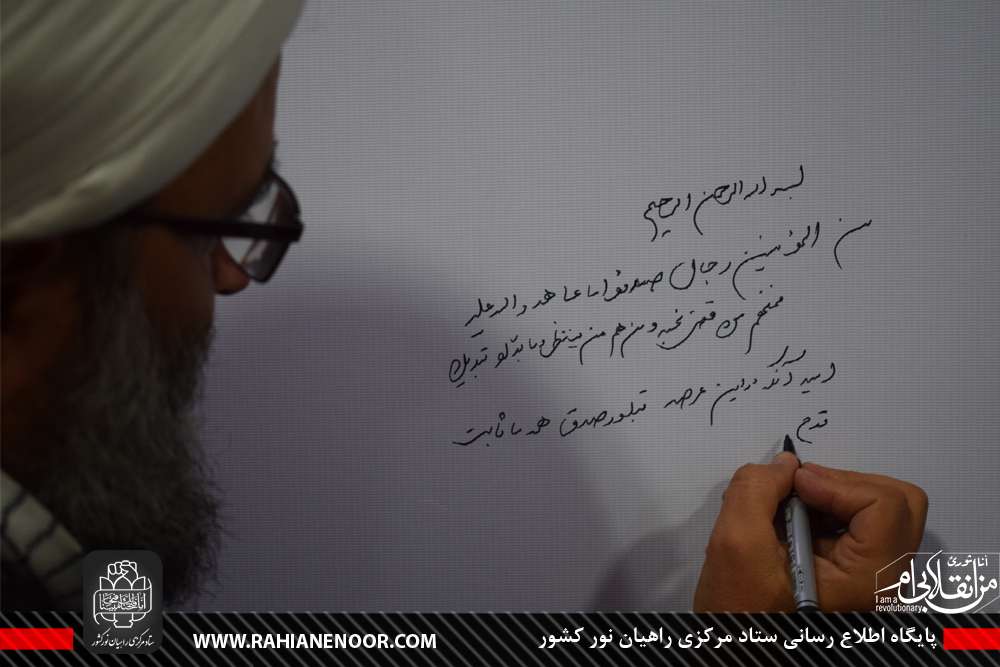 بسم الله الرحمن الرحیم
من المؤمنین رجال صدقوا ما عاهدوا الله علیه
فمنهم من قضی نحبه و منهم من ینتظر و ما بدّلوا تبدیلا
امید آنکه در این عرصه تبلور صدق عهد ما ثابت
قدم
انا ثوری
من انقلابی ام
I am a
revolutionary
ستاد مرکزی راهیان نور کشور
WWW.RAHIANENOOR.COM
پایگاه اطلاع رسانی ستاد مرکزی راهیان نور کشور